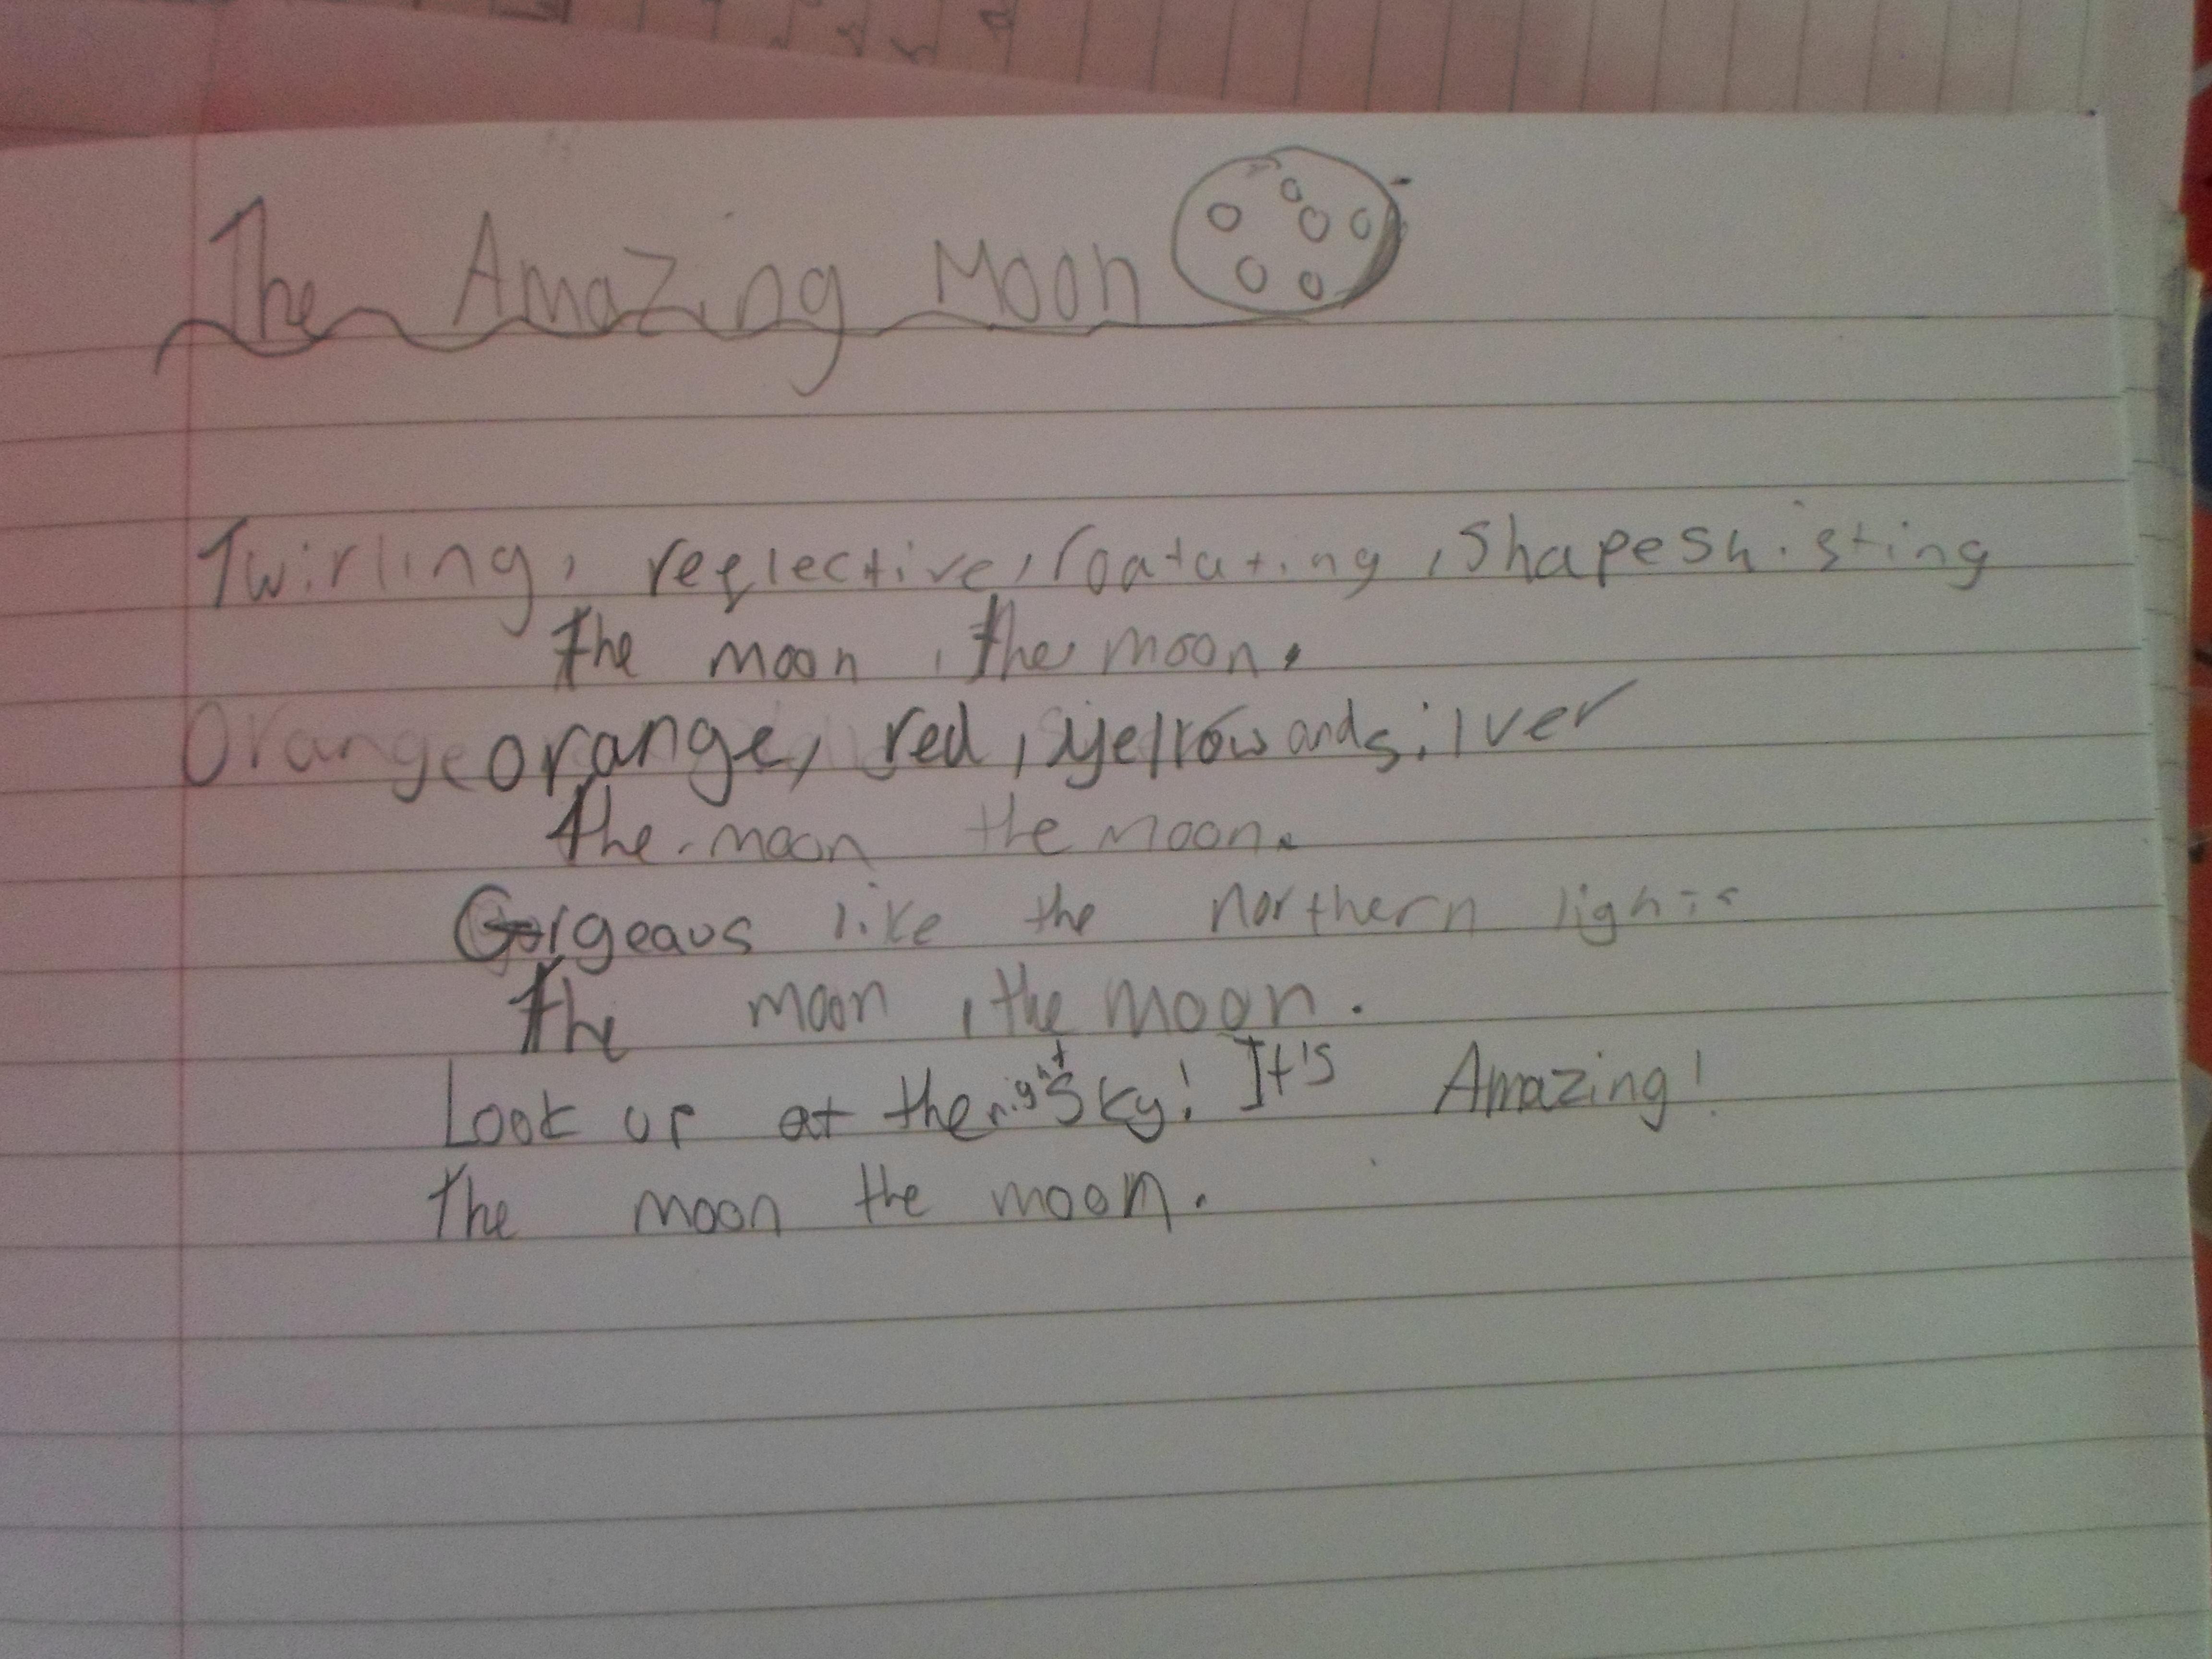 The Amazing Moon
Twirling, reflective, roatating, Shapeshisting
the moon, the moon.
Orange orange, red, yellow and silver
the moon the moon.
Gorgeous like the northern lights
The moon, the moon.
Look up at the night sky! It's Amazing!
The moon the moon.